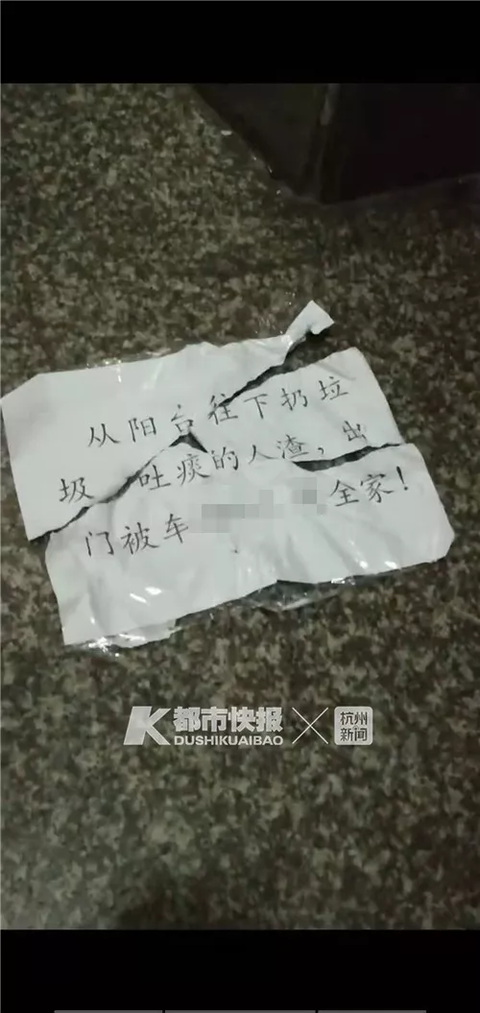 从阳台往下扔垃
圾 吐痰的人渣，出
门被车 全家！
都市快报 杭州新闻
DUSHIKUAIBAO